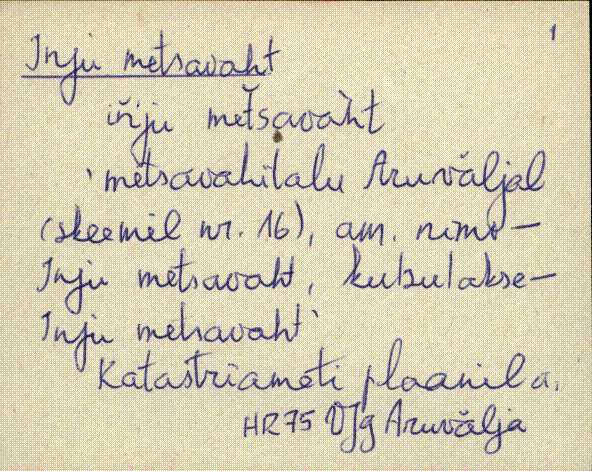 1
Inju metsavaht
ińju mètsavàht
'metsavahitalu Aruväljal
(skeemil nr. 16), am. nimi —
Inju metsavaht, kutsutakse —
Inju metsavaht'
Katastriameti plaanil a.
HR75 VJg Aruvälja